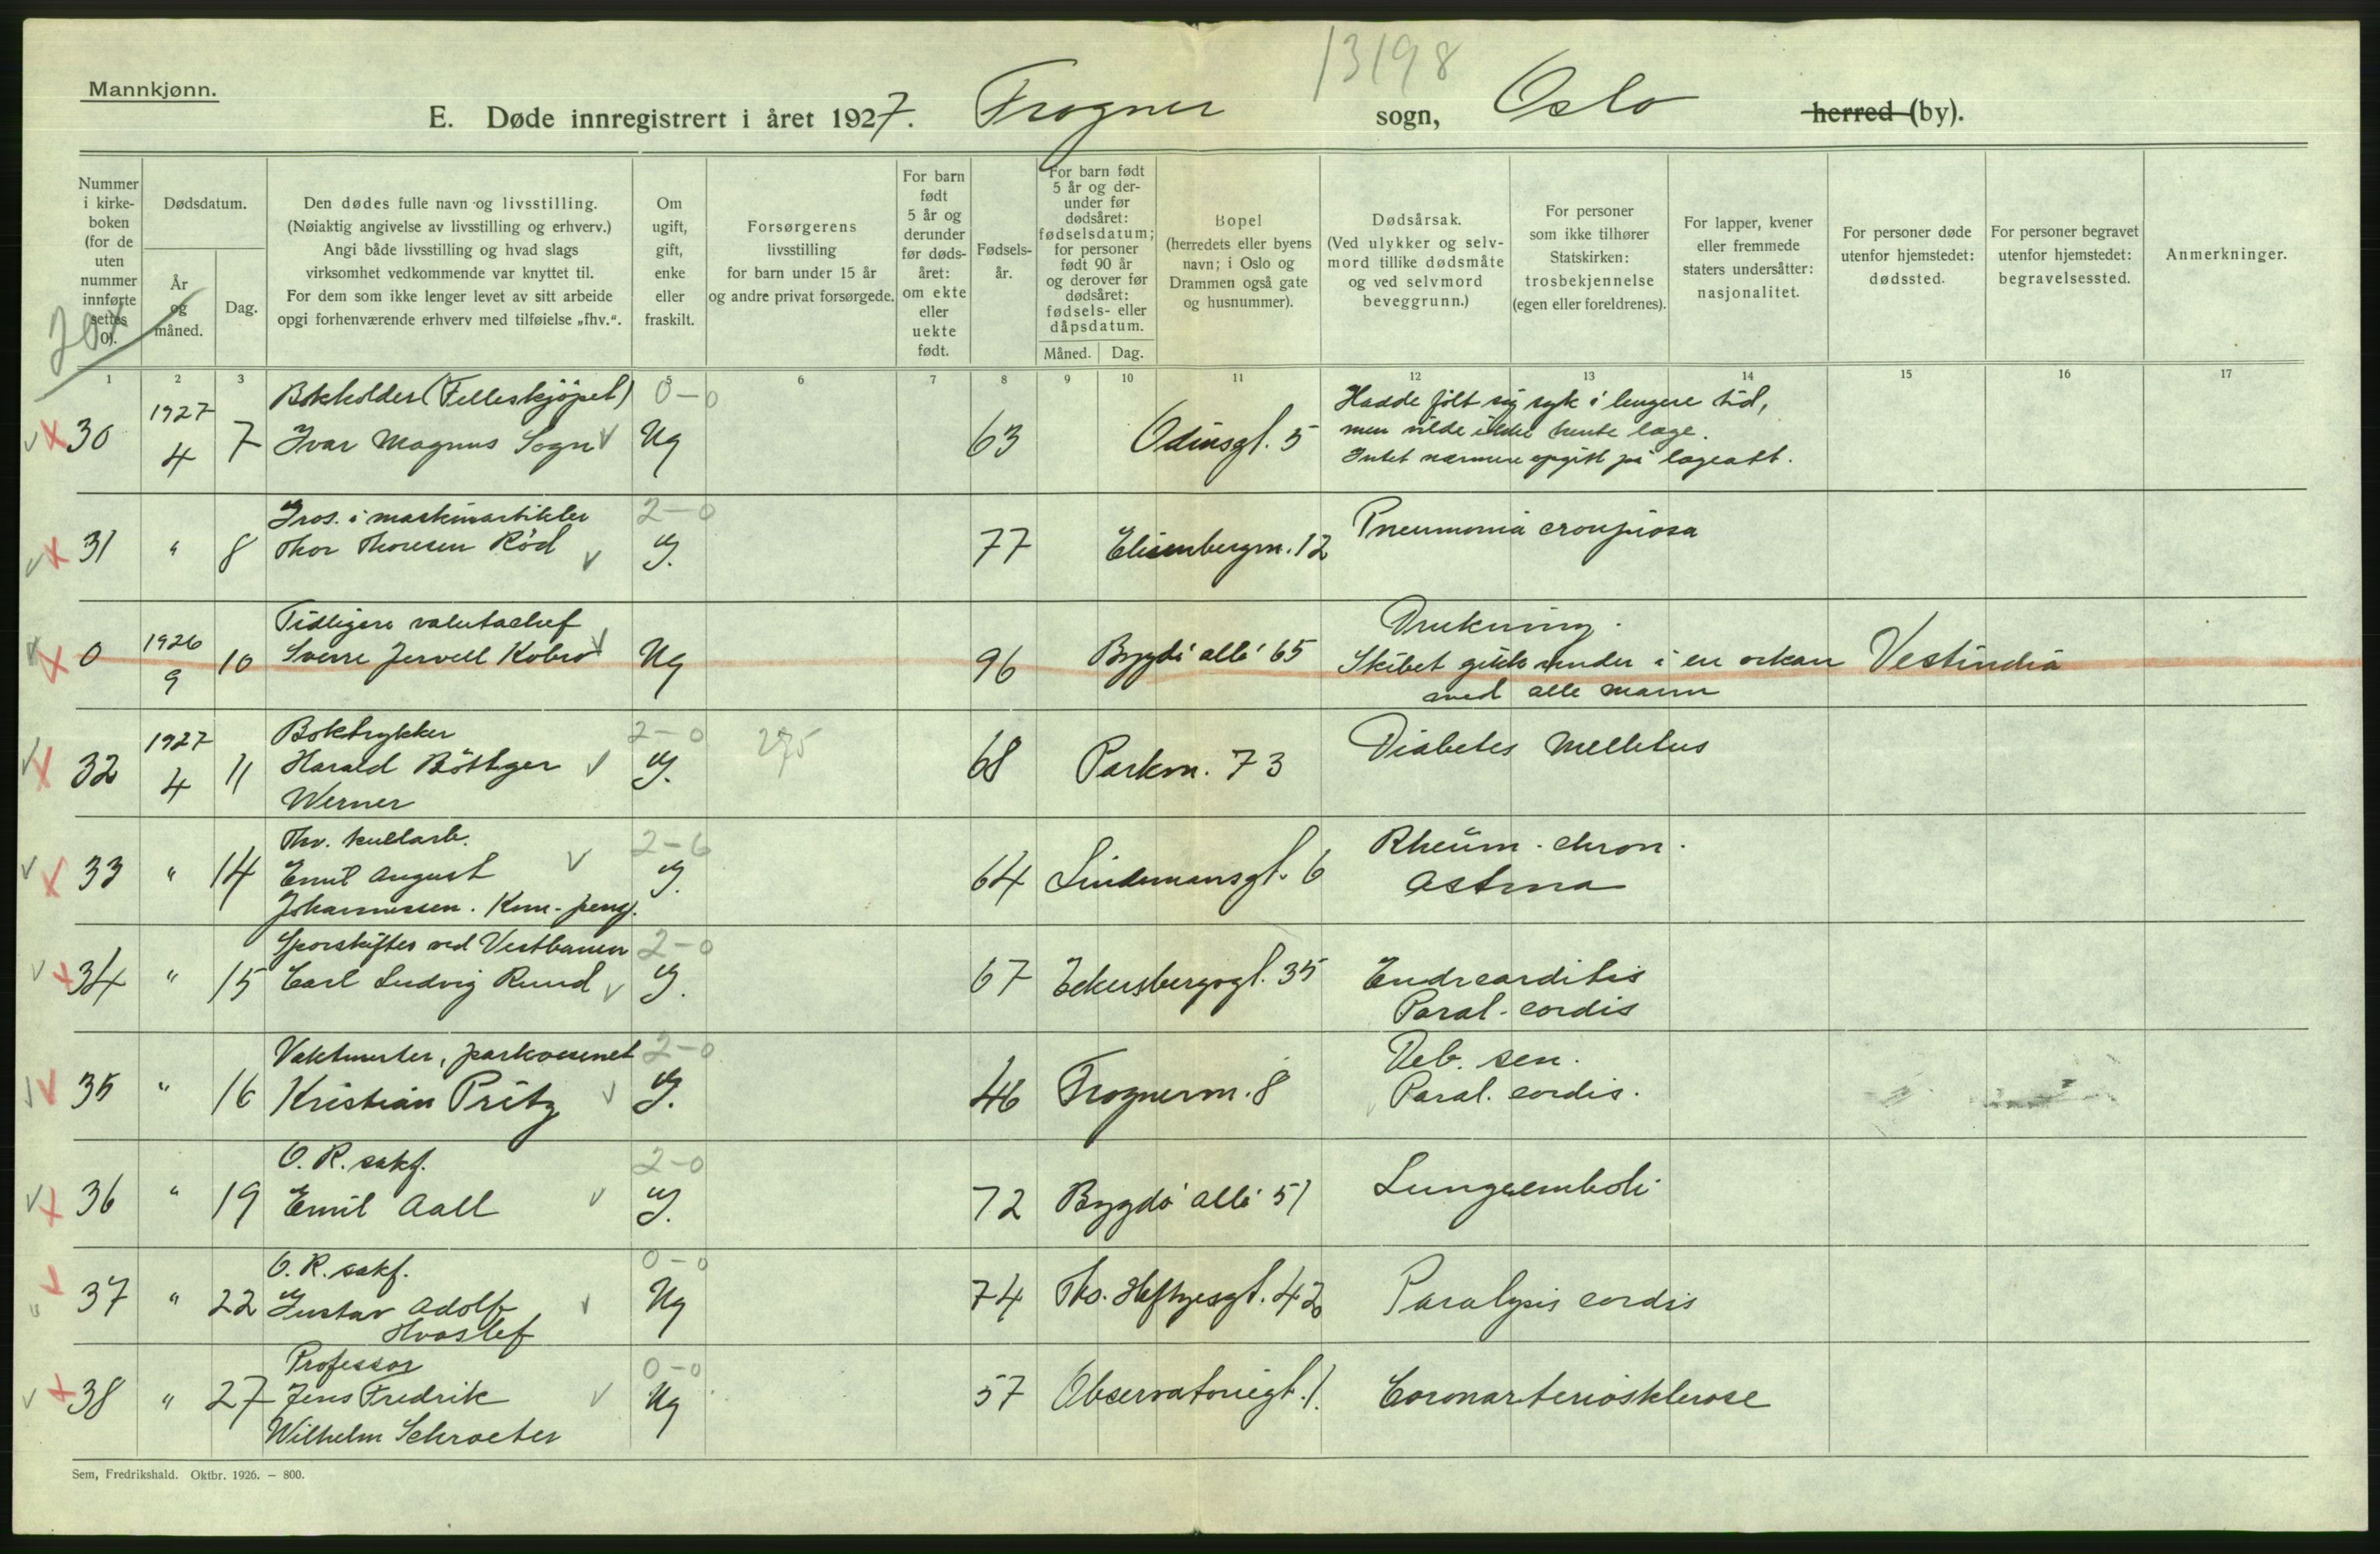 13198
Mannkjønn.
E. Døde innregistrert i året 1927. Frogner sogn, Oslo herred (by).
Nummer i kirke-boken (for de uten nummer innførte settes 0).
Dødsdatum.
År og måned.
Dag.
Den dødes fulle navn og livsstilling.
(Nøiaktig angivelse av livsstilling og erhverv.)
Angi både livsstilling og hvad slags
virksomhet vedkommende var knyttet til.
For dem som ikke lenger levet av sitt arbeide
opgi forhenværende erhverv med tilføielse „fhv.“.
Om ugift, gift, enke eller fraskilt.
Forsørgerens livsstilling for barn under 15 år og andre privat forsørgede.
For barn født 5 år og derunder før døds-året: om ekte eller uekte født.
Fødsels-år.
For barn født 5 år og der-under før dødsåret: fødselsdatum; for personer født 90 år og derover før dødsåret: fødsels- eller dåpsdatum.
Måned. Dag.
Bopel (herredets eller byens navn; i Oslo og Drammen også gate og husnummer).
Dødsårsak. (Ved ulykker og selv-mord tillike dødsmåte og ved selvmord beveggrunn.)
For personer som ikke tilhører Statskirken: trosbekjennelse (egen eller foreldrenes).
For lapper, kvener eller fremmede staters undersåtter: nasjonalitet.
For personer døde utenfor hjemstedet: dødssted.
For personer begravet utenfor hjemstedet: begravelsessted.
Anmerkninger.
1 2 3 5 6 7 8 9 10 11 12 13 14 15 16 17
Bokholder (Felleskjøpet) 0-0 Hadde følt sig syk i lengere tid,
30 1927 4 7 Ivar Magnus Sogn Ug 63 Odinsgt. 5 men vilde ikke hente læge.
Intet nærmere opgitt på lægeatt.
Gros. i maskinartikler 2-0
31 " 8 Thor Thoresen Rød g. 77 Elisenbergvn. 12 Pneumonia crouposa
Tidligere valutachef Drukning.
0 1926 9 10 Sverre Jervell Kobro Ug 96 Bygdø allé 65 Skibet gikk under i en orkan Vestindia
med alle mann
Boktrykker 2-0 275
32 1927 4 11 Harald Böttger g. 68 Parkvn. 73 Diabetes mellitus
Werner
Fhv. kullarb. 2-6 Rheum. chron.
33 " 14 Emil August g. 64 Lindemansgt. 6 Astma
Johannessen. Kom-peng.
Sporskifter ved Vestbanen 2-0
34 " 15 Carl Ludvig Rund g. 67 Eckersbergsgt. 35 Endocarditis
Paral. cordis
Vaktmester, parkvesenet 2-0 Deb. sen.
35 " 16 Kristian Pritz g. 46 Frognervn. 8 Paral. cordis.
O. R. sakf. 2-0
36 " 19 Emil Aall g. 72 Bygdø allé 51 Lungeemboli
O. R. sakf. 0-0
37 " 22 Gustav Adolf Ug 74 Tho. Heftyesgt. 42 Paralysis cordis
Hvoslef
Professor 0-0
38 " 27 Jens Fredrik Ug 57 Observatoriegt. 1. Coronarteriosklerose
Wilhelm Schroeter
Sem, Fredrikshald. Oktbr. 1926. – 800.